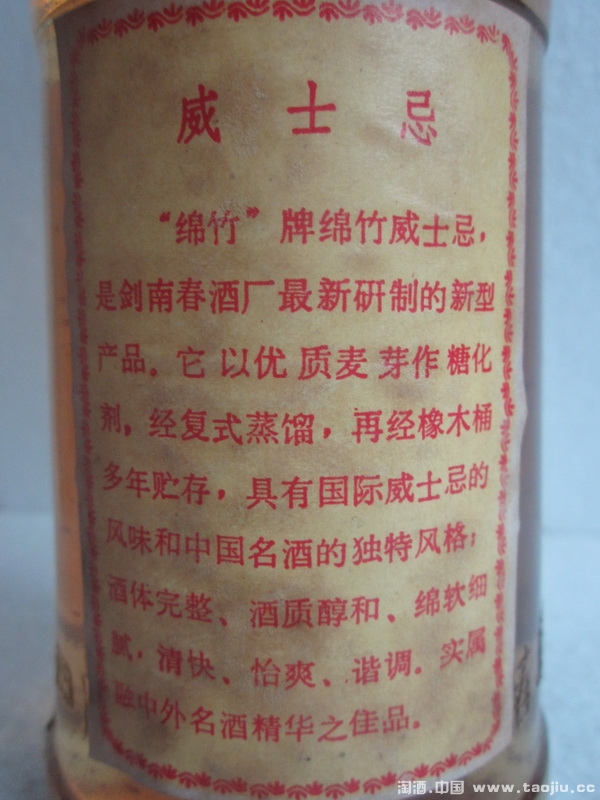 威士忌
“绵竹”牌绵竹威士忌，
是剑南春酒厂最新研制的新型
产品。它以优质麦芽作糖化
剂，经复式蒸馏，再经橡木桶
多年贮存，具有国际威士忌的
风味和中国名酒的独特风格；
酒体完整、酒质醇和、绵软细
腻，清快、怡爽、谐调。实属
融中外名酒精华之佳品。
淘酒.中国 www.taojiu.cc